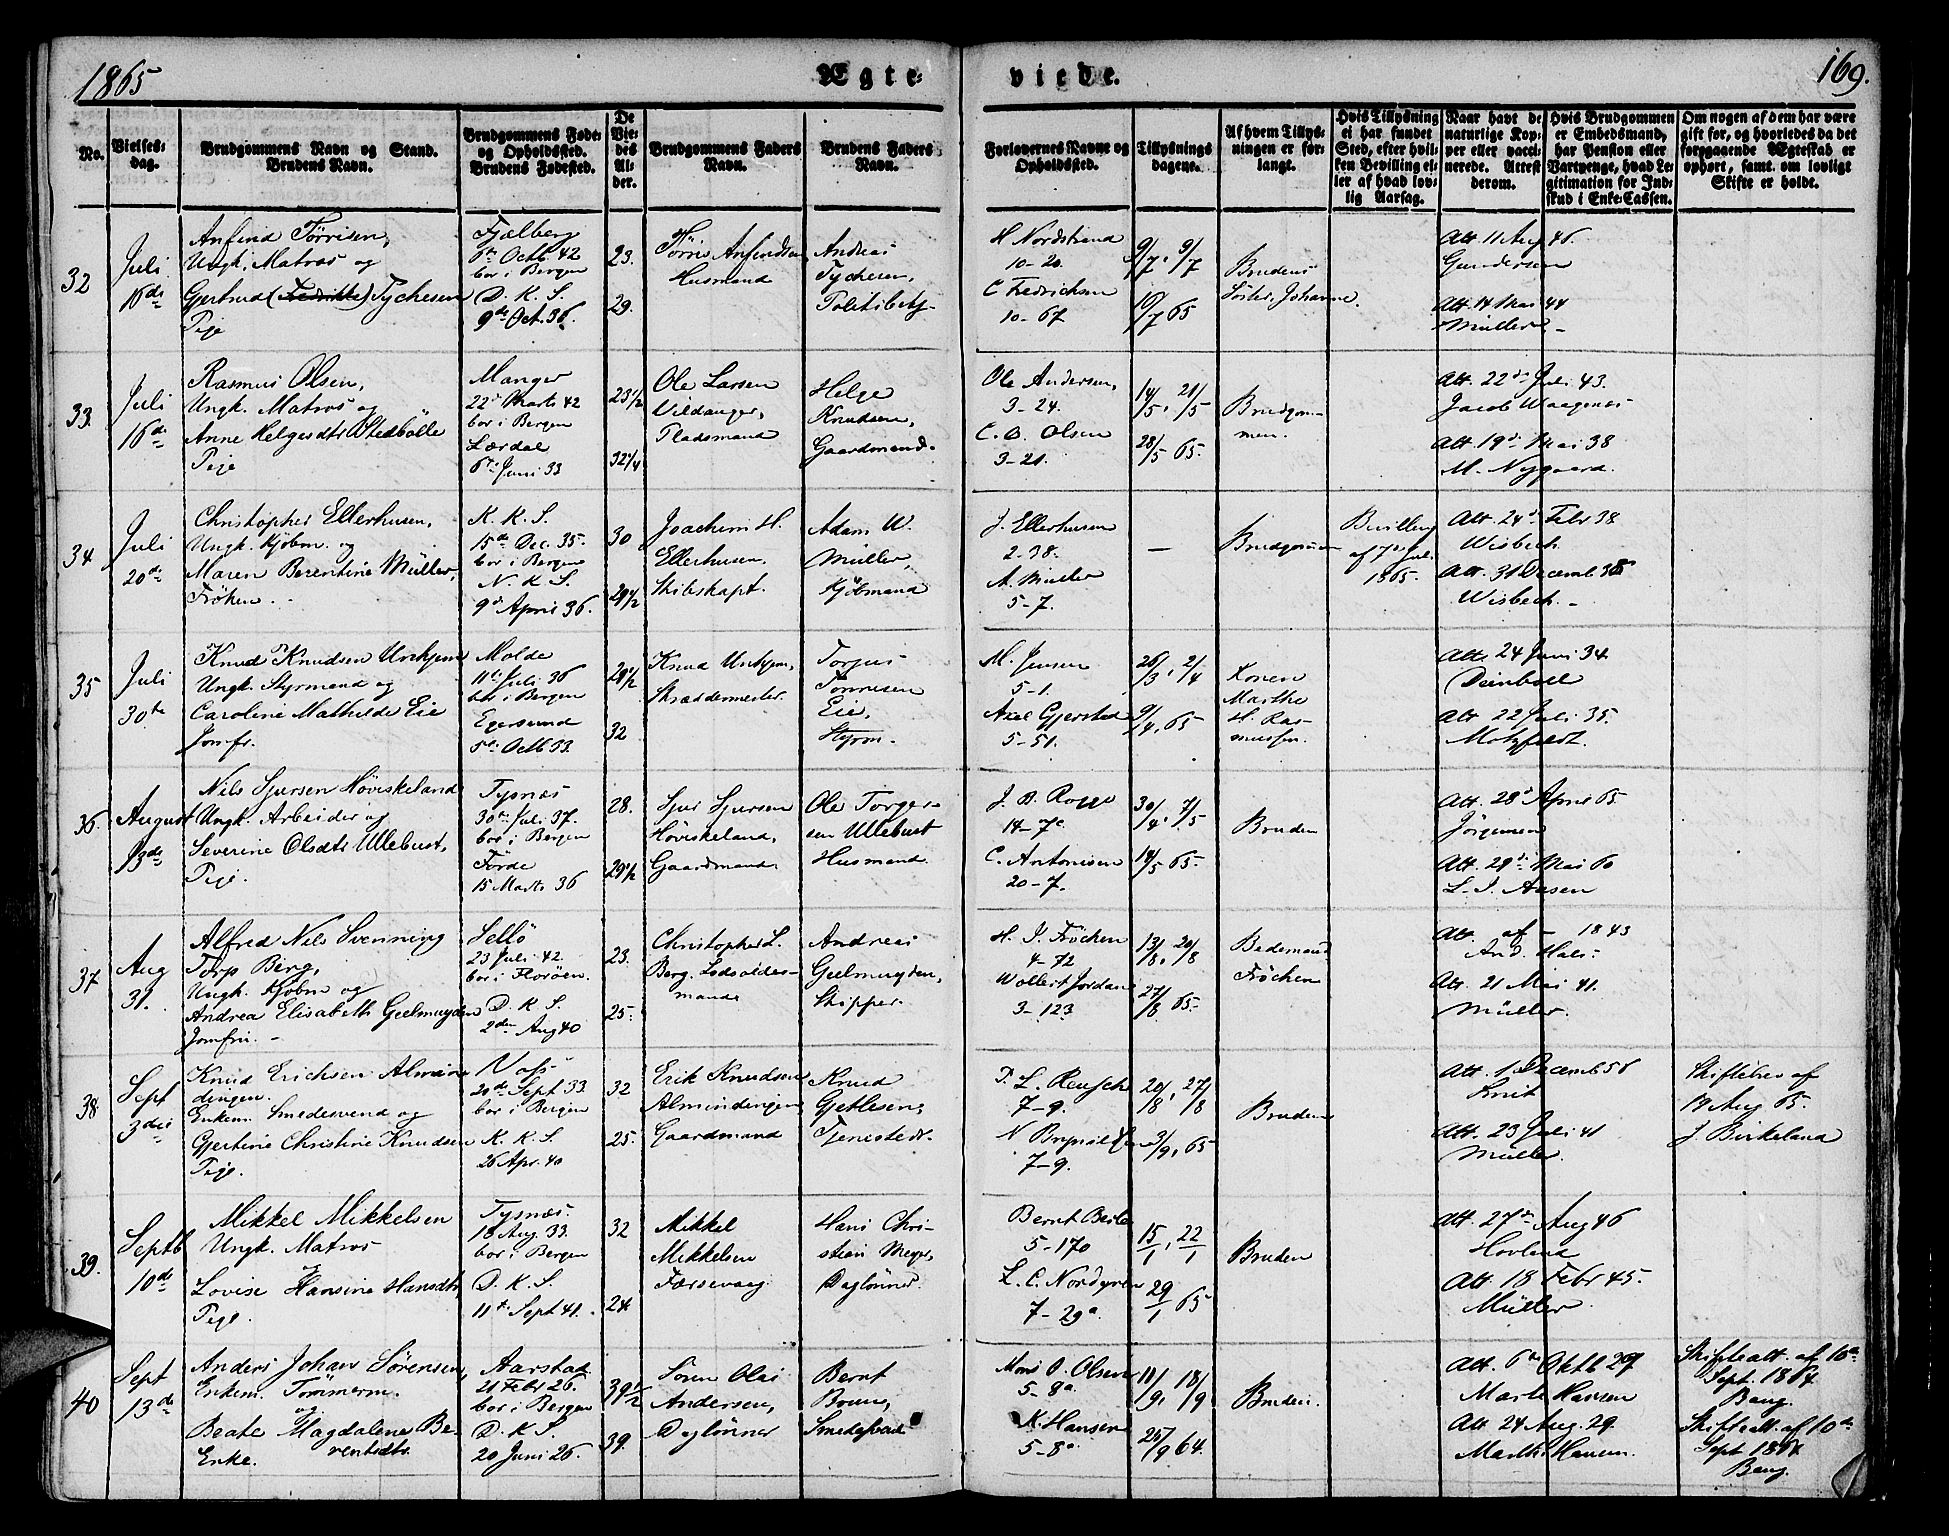 1865
Ægte-
viede.
169.
No.
Vielses-
dag.
Brudgommens Navn og Stand.
Brudens Navn.
Brudgommens Føde-
og Opholdssted.
Brudens Fødested.
De
Vie-
des
Al-
der.
Brudgommens Faders
Navn.
Brudens Faders
Navn.
Forlovernes Navne og
Opholdssted.
Tillysnings
dagene.
Af hvem Tillys-
ningen er for-
langt.
Hvis Tillysning
ei har fundet
Sted, efter hvil-
ken Bevilling el-
ler af hvad lov-
lig Aarsag.
Naar havt de
naturlige Kop-
per eller vacci-
nerede. Attest
derom.
Hvis Brudgommen
er Embedsmand,
har Pension eller
Vartpenge, hvad Le-
gitimation for Ind-
skud i Enke-Cassen.
Om nogen af dem har være
gift for, og hvorledes da det
forgagende Ægteskab er
ophort, samt om lovligt
Skifte er holdt.
32
Juli
16de
Anfind Törrisen,
Ungk. Matros og
Gjertrud (Fredrikke) Tychesen
Pige
Fjælberg
6te Octb 42
bor i Bergen
D. K. S.
9de Oct. 36.
23.
29.
Törris Anfindsen
Husmand
Andreas
Tychesen,
Politibetj.
H Nordstrand
10-20.
C Fredrichsen
10-67
9/7, 9/7
16/7 65
Brudens
Söster, Johanne.
Att. 11 Aug 46.
Gundersen
Att. 14 Mai 44
Müller -
33.
Juli
16de
Rasmus Olsen,
Ungk. Matros og
Anne Helgesdtr Stedbölle
Pige
Manger
22de Marts 42
bor i Bergen
Lærdal
6te Juni 33
23 1/2
32 1/4
Ole Larsen
Vildanger,
Pladsmand
Helge
Knudsen,
Gaardmand.
Ole Andersen,
3-24.
C. O. Olsen
3-21.
14/5, 21/5
28/5 65.
Brudgom-
men.
Att. 22de Juli 43.
Jacob Waagenæs
Att. 19de Mai 38
M. Nygaard.
34
Juli
20de
Christopher Ellerhusen,
Ungk. Kjöbm. og
Maren Berentine Müller,
Fröken.
K. K. S.
15de Dec. 35.
bor i Bergen
N. K. S.
9de April 36.
30
29 1/2
Joachim H.
Ellerhusen.
Skibskapt.
Adam W.
Müller,
Kjöbmand
J. Ellerhusen
2-38.
A. Müller
5-7.
—
Brudgommen
Bevilling
af 7de Jul.
1865.
Att. 24de Febr 38
Wisbech
Att. 31 Decemb 38
Wisbech. -
35
Juli
30te
Knud Knudsen Unhjem
Ungk. Styrmand og
Caroline Mathilde Eie
Jomfr.
Molde
11te Juli 36
bor i Bergen
Egersund
5te Octb 33.
29 1/2
32
Knud Unhjem,
Skræddermester.
Torjus
Tönnesen
Eie,
Styrm.
M. Jensen
5-1.
Axel Gjersted
5-51.
26/3, 2/4
9/4, 65
Konen
Marthe
H. Ras-
mussen.
Att. 24 Juni 34.
Deinboll
Att. 22 Juli 35.
Motzfeldt.
36.
August
13de
Nils Sjursen Höviskeland
Ungk. Arbeider og
Severine Olsdtr Ullebust,
Pige.
Tysnæs
30te Juli 37.
bor i Bergen
Förde
15 Marts 36
28.
29 1/2
Sjur Sjursen
Höviskeland,
Gaardmand.
Ole Torger-
sen Ullebust
Husmand.
14-7c
C. Antonisen
20-7.
30/4, 7/5
14/5 65.
Bruden
Att. 28de April 65
Jörgensen
Att. 29de Mai 60
L. I. Aasen
37
Aug
31.
Alfred Nils Svenning
Torp Berg,
Ungk. Kjöbm og
Andrea Elisabeth Geelmuyden
Jomfru. -
Sellö
23 Juli 42.
bor i Floröen.
D. K. S.
2den Aug 40
23.
25.
Christopher L.
Berg. Lodsolder-
mand
Andreas
Geelmuyden,
Skipper.
H. I. Fröchen
4-72
Wollert Jordan
3-123
13/8, 20/8
27/8 65.
Bedemand
Fröchen
Att. af - 1843
And. Hals.
Att. 21 Mai 41.
Müller.
38
Sept
3die
Knud Erichsen Almin-
dingen.
Enkem. Smedesvend og
Gjertine Christine Knudsen
Pige.
Voss
20de Sept 33
bor i Bergen
K. K. S.
26 Apr. 40
32
25.
Erik Knudsen
Almindingen,
Gaardmand
Knud
Gjetlesen,
Tjenestedr.
P. L. Reusch
7-9.
7-9.
20/8, 27/8
3/9, 65
Bruden
Att. 1 Decemb 58
Smit
Att. 23 Juli 41
Müller.
Skiftebrev af
19 Aug 65.
J. Birkeland
39.
Septb
10de
Mikkel Mikkelsen
Ungk. Matros
og
Lovise Hansine Hansdtr
Pige.
Tysnæs.
18 Aug 33.
bor i Bergen
D. K. S.
11te Sept 41.
32
24.
Mikkel
Mikkelsen
Færsevaag
Hans Chri-
stian Meyer,
Daglönner
5-170
L. C. Nordgren
7-29a
15/1, 22/1
29/1 65
Bruden
Att. 27de Aug 46
Hovland
Att. 18 Febr 45.
Müller.
40
Sept
13de
Anders Johan Sörensen
Enkem. Tömmerm.
og
Beate Magdalene Be-
rentsdtr.
Enke.
Aarstad.
21 Febr 26.
bor i Bergen
D. K. S.
20 Juni 26.
39 1/2
39.
Sören Olai
Andersen,
Daglönner
Bernt
Bruun,
Mons O. Olsen
5-8a.
K. Hansen
5-8a
11/9, 18/9
25/9 64.
Bruden.
Att. 6te Oktb 27
Marti Hansen
Att 24 Aug. 29
Marthi Hansen.
Skifteatt. af 10de
Sept. 1864
Bang.
Skifteatt. af 10de
Sept 1864
Bang.